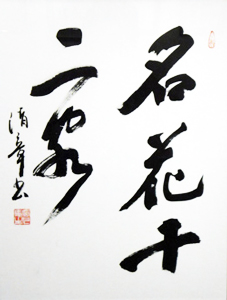 名花十
二客
清章书